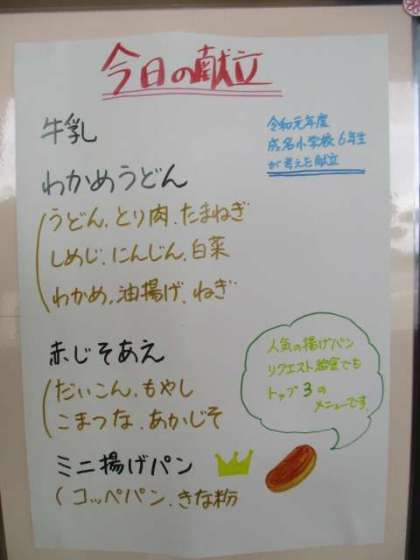 今日の献立
牛乳
令和元年度
成名小学校6年生
が考えた献立
わかめうどん
うどん、とり肉、たまねぎ
しめじ、にんじん、白菜
わかめ、油揚げ、ねぎ
赤じそあえ
だいこん、もやし
こまつな、あかじそ
人気の揚げパン
リクエスト給食でも
トップ3の
メニューです
ミニ揚げパン
(コッペパン、きな粉